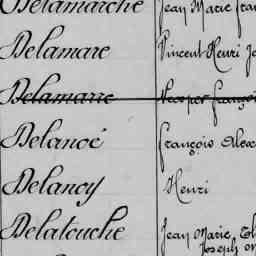 Delamarche Jean Marie
Delamare Vincent Henri
Delamarre
Delanoé François Alex
Delanoy Henri
Delatouche Jean Marie
Joseph